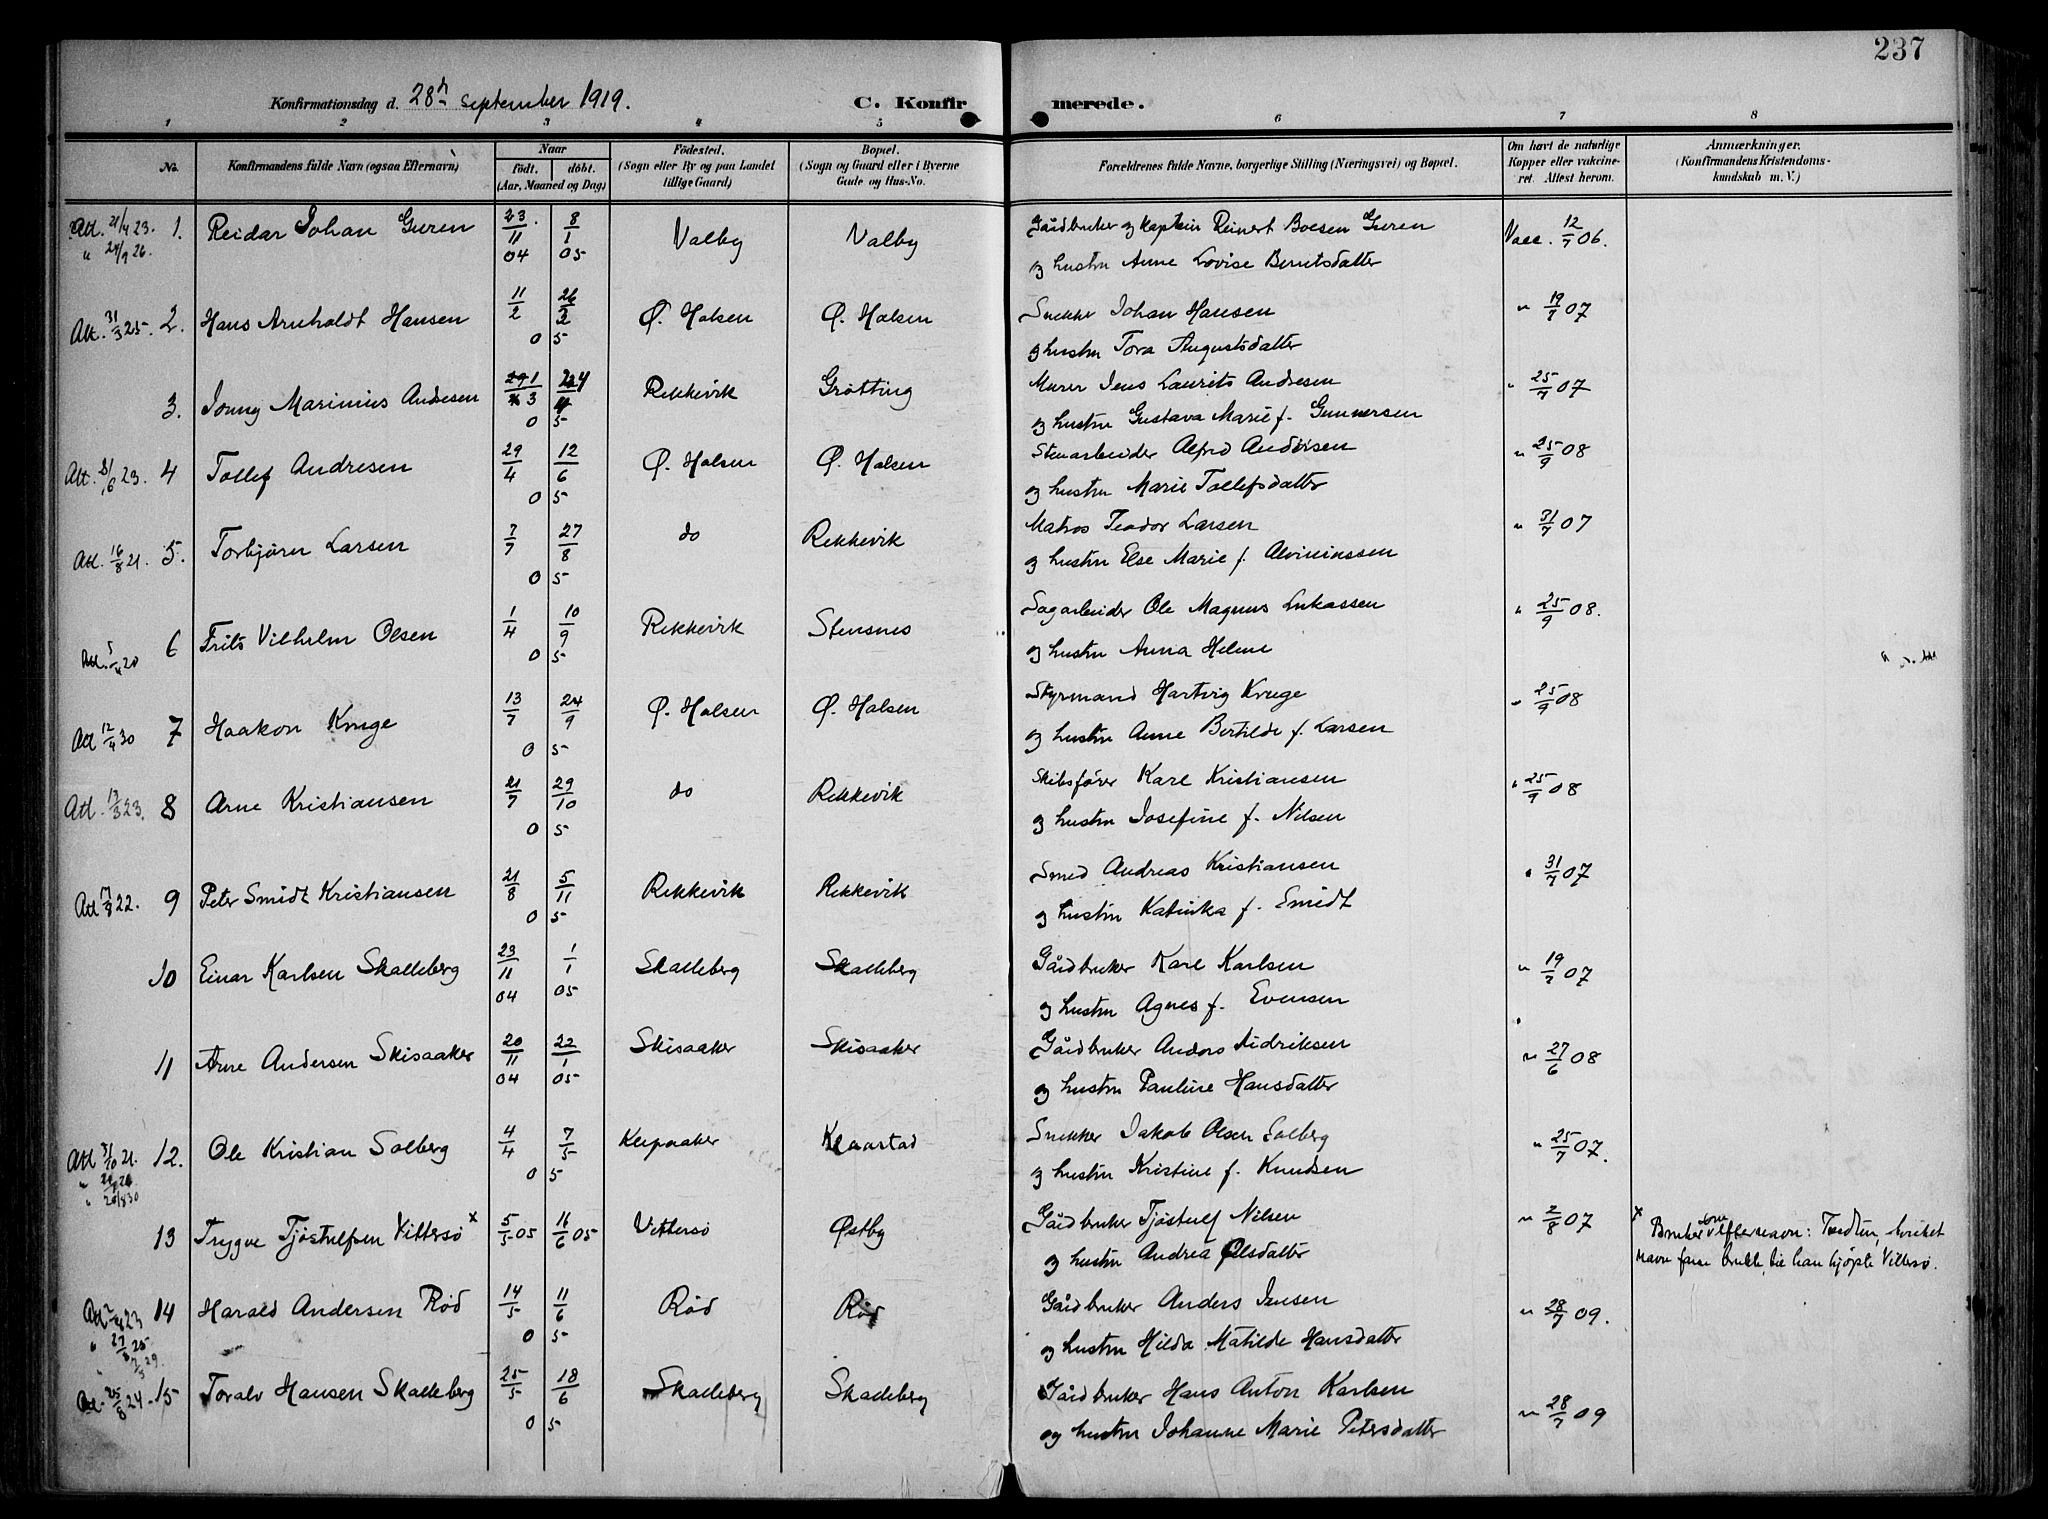 237
Konfirmationsdag d. 28de september 1919.
C. Konfirmerede.
1 2 3 4 5 6 7 8
No.
Konfirmandens fulde Navn (ogsaa Efternavn)
Naar
født. døbt.
(Aar, Maaned og Dag)
Fødested.
(Sogn eller By og paa Landet
tillige Gaard)
Bopæl.
(Sogn og Gaard eller i Byerne
Gade og Hus-No.
Forældrenes fulde Navne, borgerlige Stilling (Næringsvei) og Bopæl.
Om havt de naturlige
Kopper eller vakcine-
ret. Attest herom.
Anmærkninger.
(Konfirmandens Kristendoms-
kundskab m. V.)
Att. 21/4 23. 1. Reidar Johan Guren 23/11 04 8/1 05 Valby Valby Gårdbruker og kaptein Reinert Boesen Guren Vacc. 12/7 06.
og hustru Anne Lovise Berntsdatter
Att. 31/3 25. 2. Hans Arnholdt Hansen 11/2 26/2 05 Ø. Halsen Ø. Halsen Snekker Johan Hansen " 19/7 07
og hustru Tora Augustsdatter
3. Jonny Marinius Andresen 05 Rekkevik Grøtting Murer Jens Laurits Andresen " 25/7 07
og hustru Gustava Marie f. Gunnersen
Att. 23. 4 Tollef Andresen 29/4 12/6 05 Ø. Halsen Ø. Halsen Stenarbeider Alfred Andresen " 25/9 08
og hustru Marie Tollefsdatter
Att. 16/8 21. 5. Torbjørn Larsen 7/7 27/8 05 do Rekkevik Matros Teodor Larsen " 31/7 07
og hustru Else Marie f. Alviniussen
Att. 5/4 20 6 Frits Vilhelm Olsen 1/4 10/9 05 Rekkevik Stensnes Sagarbeider Ole Magnus Lukassen " 25/9 08.
og hustru Anna Helene
Att 12/4 30 7 Haakon Kruge 13/7 24/9 05 Ø. Halsen Ø. Halsen Styrmand Hartvig Kruge " 25/9 08
og hustru Anne Bertilde f. Larsen
Att. 13/3 23. 8 Arne Kristiansen 21/7 29/10 05 do Rekkevik Skibsfører Karl Kristiansen " 25/9 08
og hustru Josefine f. Nilsen
Att 17/8 22. 9 Peter Smidt Kristiansen 21/8 5/11 05 Rekkevik Rekkevik Smed Andreas Kristiansen " 31/7 07
og hustru Katinka f. Smidt
10 Einar Karlsen Skalleberg 23/11 04 1/1 05 Skalleberg Skalleberg Gårdbruker Karl Karlsen " 19/7 07
og hustru Agnes f. Evensen
11 Arne Andersen Skisaaker 20/11 04 22/1 05 Skisaaker Skisaaker Gårdbruker Anders Didriksen " 27/6 08
og hustru Pauline Hansdatter
Att 21. 12. Ole Kristian Solberg 4/4 7/5 05 Klepaaker Klaastad Snekker Jakob Olsen Solberg " 25/7 07.
og hustru Kristine f. Knudsen
13 Trygve Tjøstulfsen Vittersø x 5/5 05 16/6 05 Vittersø Østby Gårdbruker Tjøstulf Nilsen " 2/8 07
x Bruker som efternavn: hvilket
og hustru Andrea Olsdatter
navn faren brukte, da han kjøpte Vittersø.
Att 23 14 Harald Andersen Rød 14/5 11/6 05 Rød Rød Gårdbruker Anders Jensen " 28/7 09.
og hustru Hilda Matilde Hansdatter
Att. 25/8 24. 15 Toralv Hansen Skalleberg 25/5 18/6 05 Skalleberg Skalleberg Gårdbruker Hans Anton Karlsen " 28/7 09
og hustru Johanne Marie Petersdatter